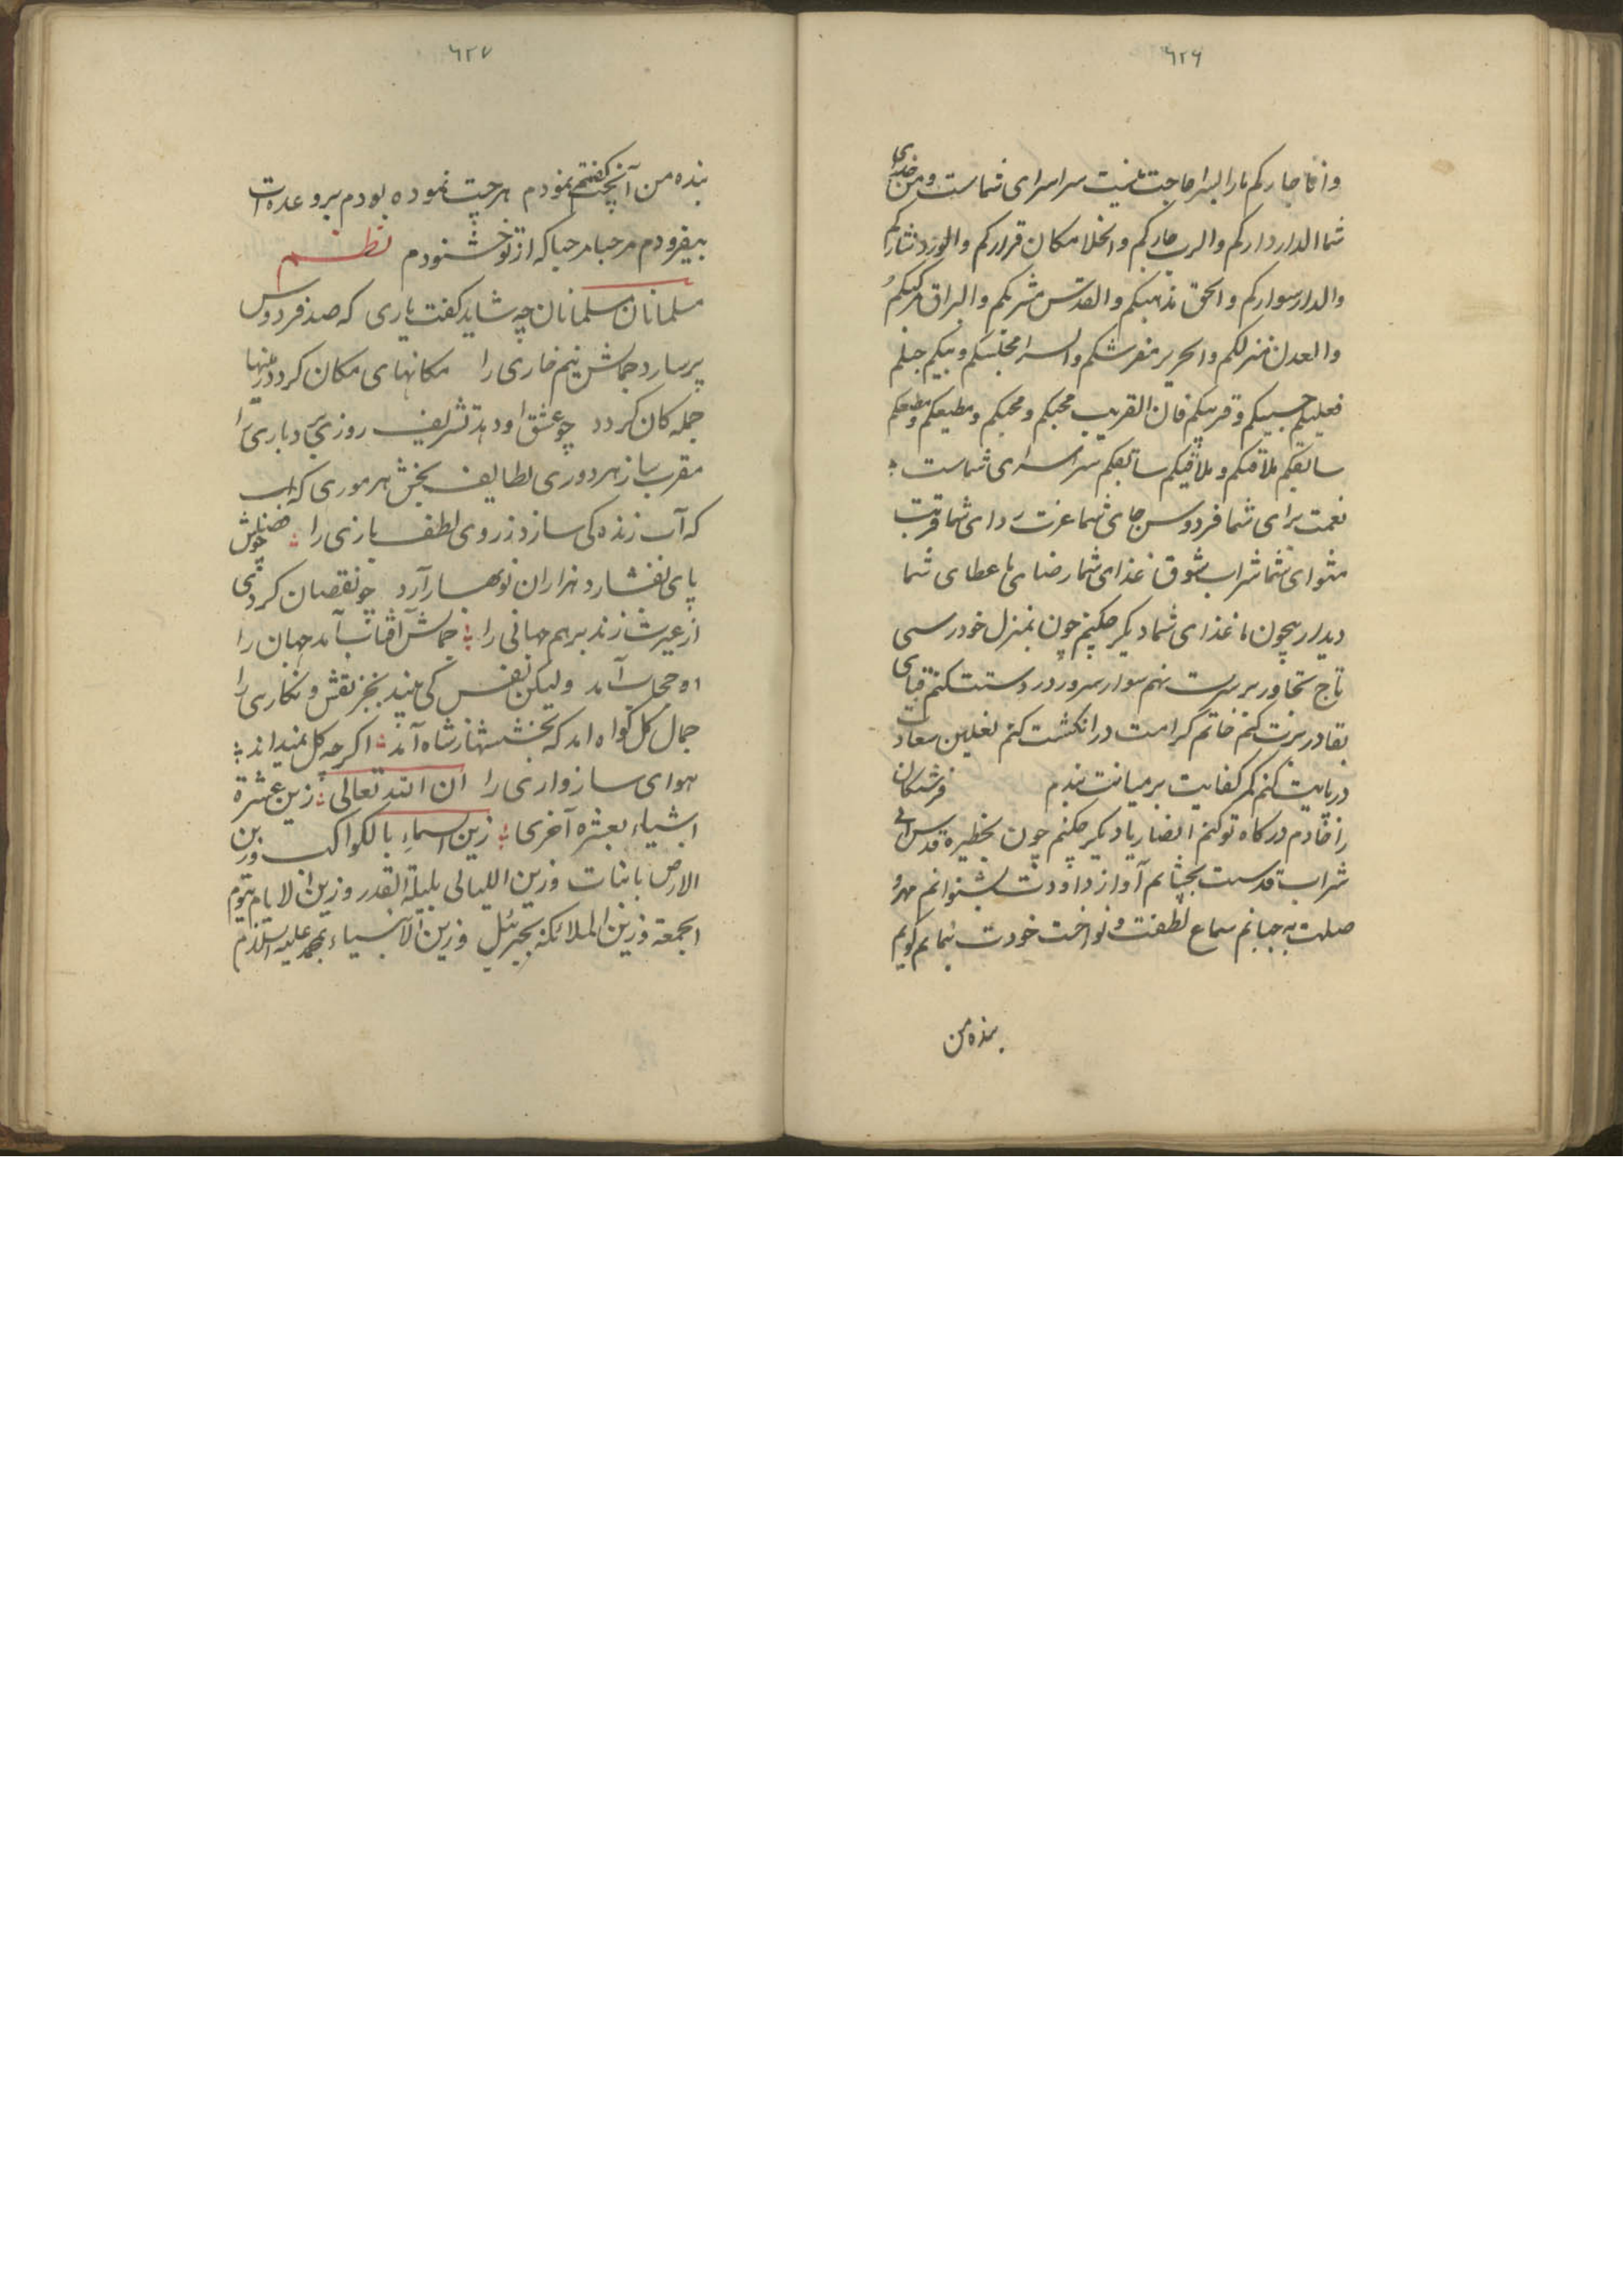 ٦٢٦
وانا جاركم ما را بسرا حاجت نیست سراسرای شماست و من خدای
شما الدار داركم والرب جاركم والخلا مكان قراركم والورد نثاركم
والدار سواركم والحق مذهبكم والقدس مشربكم والبراق مركبكم
والعدن منزلكم والحریر مفرشكم و مجلسكم و نبیكم
حبیبكم و قریبكم فان القریب محبكم و محبكم و مطیعكم و مطیعكم
سابقكم ملاقیكم و ملاقیكم سابقكم سراسرای شماست
نعمت برای شما فردوس جای شما عزت ردای شما قربت
مثوای شما شراب شوق ما غذای شما رضای ما عطای شما
دیدار بیچون ما غذای شما دیكر چكنم چون بمنزل خود رسی
تاج تجاور بر سرت نهم سوار سرور در دستت كنم قبای
بقا در برت كنم خاتم كرامت در انكشت كنم نعلین سعادت
در پایت كنم كمر كفایت بر میانت بندم فرشتكان
را خادم دركاه تو كنم دیكر چكنم چون بحظیره قدس
شراب قدست بچشانم آواز داودت بشنوانم
صلت بجنبانم سماع لطفت و نواخت خودت بنمایم كویم
بنده من
٦٢٧
بنده من آنچت كفتم نمودم هرچت نموده بودم بر وعدهات
بیفزودم مرحبا مرحبا كه از تو خشنودم نظم
مسلمانان مسلمانان چه شاید كفت یاری كه صد فردوس
پر سازد جمالش نیم خاری را مكانهای مكان كردد زمینها
جمله كان كردد چو عشق او دهد تشریف روزی دیاری را
مقرب سازد هر دوری لطایف بخش هر موری كه
كه آب زنده كی سازد ز روی لطف بازی را
پای بفشارد هزاران نوبهار آرد چو نقصان كردی
از غیرت زند برهم جهانی را جمالش آفتاب آمد جهان را
او آمد ولیكن نفس كی بیند بجز نقش و نكاری را
جمال كل كواه آمد كه بخششها ز شاه آمد اكر چه كل نمیداند
هوای سازواری را ان الله تعالی زین عشرة
اشیاء بعشرة آخری زین السماء بالكواكب و زین
الارض بانبات و زین اللیالی بلیلة القدر و زین الایام بیوم
الجمعة و زین الملائكة بجبرئیل و زین الانبیاء بمحمد علیه السلام